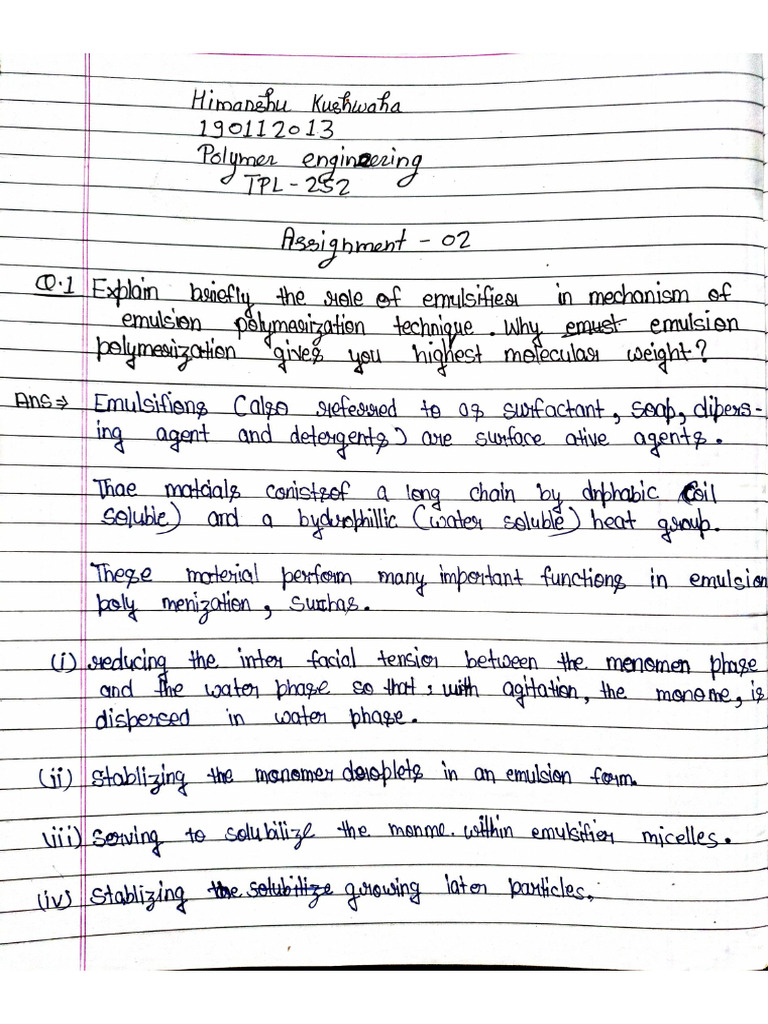 Himanshu Kushwaha
190112013
Polymer engineering
TPL-252
Assignment - 02
Q.1 Explain briefly the role of emulsifier in mechanism of
emulsion polymerization technique. Why emust emulsion
polymerization gives you highest molecular weight?
Ans ⇒ Emulsifions (also referred to as surfactant, soap, dipers-
ing agent and detergents) are surface ative agents.
Thae matcials conistsof a long chain by drphabic (oil
soluble) and a bydrophillic (water soluble) heat group.
These material perform many important functions in emulsion
poly menization, suchas.
(i) reducing the inter facial tension between the menomen phase
and the water phase so that, with agitation, the monome, is
dispersed in water phase.
(ii) Stablizing the monomer doroplets in an emulsion form.
(iii) Serving to solubilize the monme. within emulsifier micelles.
(iv) Stablizing the solubilize growing later particles,